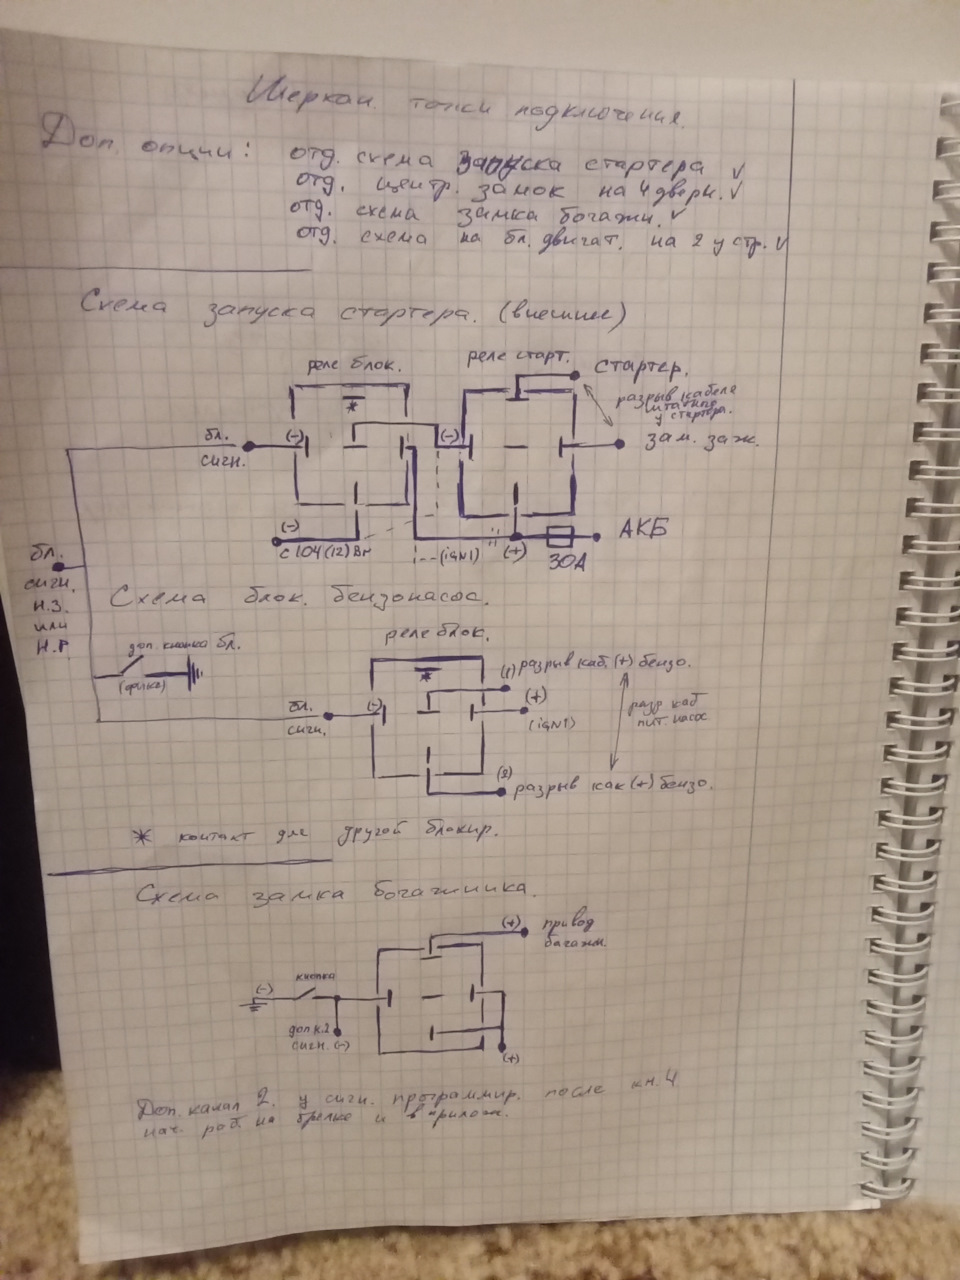 точки подключения.
Доп. опции: отд. схема запуска стартера ✓
отд. центр. замок на 4 двери. ✓
отд. схема замка багажн. ✓
отд. схема на бл. двигат. на 2 устр. ✓
Схема запуска стартера. (внешнее)
реле блок.
реле старт.
стартер.
разрыв кабеля
штатного
у стартера.
*
бл.
сигн.
(-)
(-)
зам. заж.
(-)
с 104 (12) Вт
(ign1)
(+)
30А
АКБ
бл.
сигн.
Н.З.
или
Н.Р.
Схема блок. бензонасос.
реле блок.
доп. кнопка бл.
*
(1) разрыв каб. (+) бензо.
(-)
(+)
(ign1)
разр. каб
пит. насос
бл.
сигн.
(2)
разрыв каб (+) бензо.
* контакт для другой блокир.
Схема замка богажника.
(+)
привод
багажн.
(-)
кнопка
доп к.2
сигн. (-)
(+)
Доп. канал 2. у сигн. программир. после кн. 4
нач. раб. на брелке и в прилож.